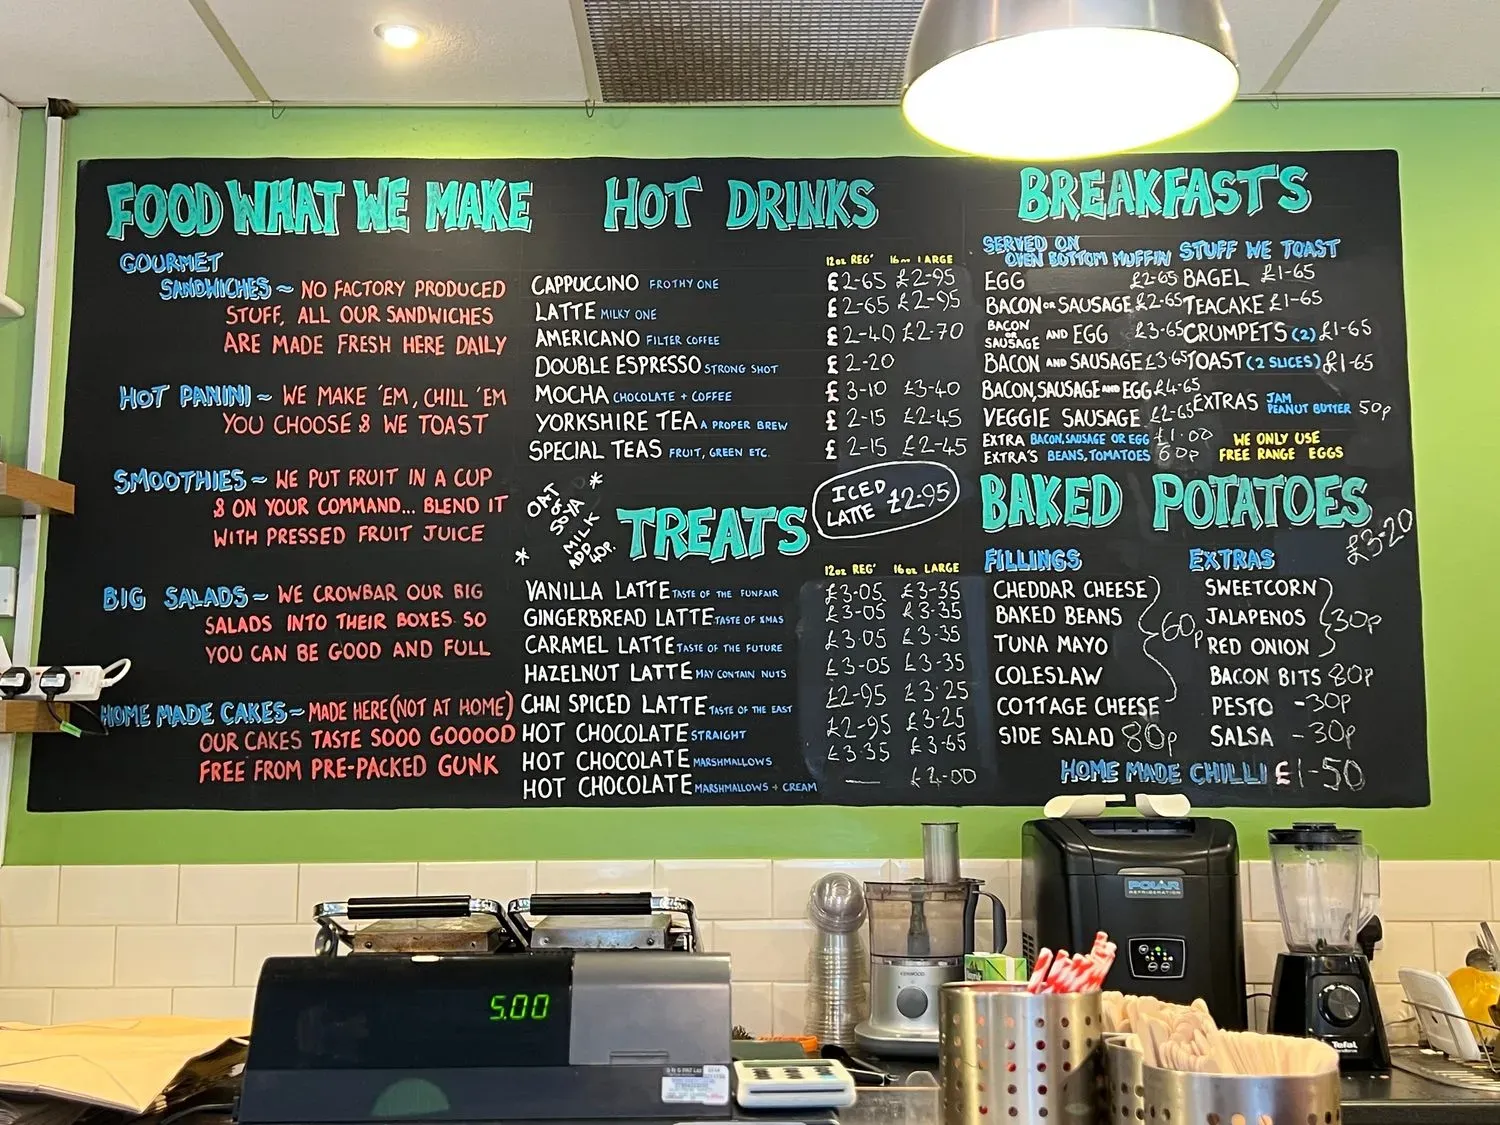 FOOD WHAT WE MAKE
GOURMET
SANDWICHES ~ NO FACTORY PRODUCED
STUFF, ALL OUR SANDWICHES
ARE MADE FRESH HERE DAILY
HOT PANINI ~ WE MAKE 'EM, CHILL 'EM
YOU CHOOSE & WE TOAST
SMOOTHIES ~ WE PUT FRUIT IN A CUP
& ON YOUR COMMAND... BLEND IT
WITH PRESSED FRUIT JUICE
BIG SALADS ~ WE CROWBAR OUR BIG
SALADS INTO THEIR BOXES SO
YOU CAN BE GOOD AND FULL
HOME MADE CAKES ~ MADE HERE (NOT AT HOME)
OUR CAKES TASTE SOOO GOOOOD
FREE FROM PRE-PACKED GUNK
HOT DRINKS
12oz REG' 16oz LARGE
CAPPUCCINO FROTHY ONE £2-65 £2-95
LATTE MILKY ONE £2-65 £2-95
AMERICANO FILTER COFFEE £2-40 £2-70
DOUBLE ESPRESSO STRONG SHOT £2-20
MOCHA CHOCOLATE + COFFEE £3-10 £3-40
YORKSHIRE TEA A PROPER BREW £2-15 £2-45
SPECIAL TEAS FRUIT, GREEN ETC. £2-15 £2-45
* OAT or SOYA MILK ADD 40p. *
ICED LATTE £2-95
TREATS
12oz REG' 16oz LARGE
VANILLA LATTE TASTE OF THE FUNFAIR £3-05 £3-35
GINGERBREAD LATTE TASTE OF XMAS £3-05 £3-35
CARAMEL LATTE TASTE OF THE FUTURE £3-05 £3-35
HAZELNUT LATTE MAY CONTAIN NUTS £3-05 £3-35
CHAI SPICED LATTE TASTE OF THE EAST £2-95 £3-25
HOT CHOCOLATE STRAIGHT £2-95 £3-25
HOT CHOCOLATE MARSHMALLOWS £3-35 £3-65
HOT CHOCOLATE MARSHMALLOWS + CREAM — £4-00
BREAKFASTS
SERVED ON
OVEN BOTTOM MUFFIN
EGG £2-65
BACON or SAUSAGE £2-65
BACON OR SAUSAGE AND EGG £3-65
BACON AND SAUSAGE £3-65
BACON, SAUSAGE AND EGG £4-65
VEGGIE SAUSAGE £2-65
EXTRA BACON, SAUSAGE OR EGG £1.00
EXTRA'S BEANS, TOMATOES 60p
STUFF WE TOAST
BAGEL £1-65
TEACAKE £1-65
CRUMPETS (2) £1-65
TOAST (2 SLICES) £1-65
EXTRAS JAM PEANUT BUTTER 50p
WE ONLY USE
FREE RANGE EGGS
BAKED POTATOES
£3-20
FILLINGS
CHEDDAR CHEESE
BAKED BEANS
TUNA MAYO 60p
COLESLAW
COTTAGE CHEESE
SIDE SALAD 80p
EXTRAS
SWEETCORN
JALAPENOS 30p
RED ONION
BACON BITS 80p
PESTO - 30p
SALSA - 30p
HOME MADE CHILLI £1-50
POLAR
REFRIGERATION
KENWOOD
Tefal
5.00